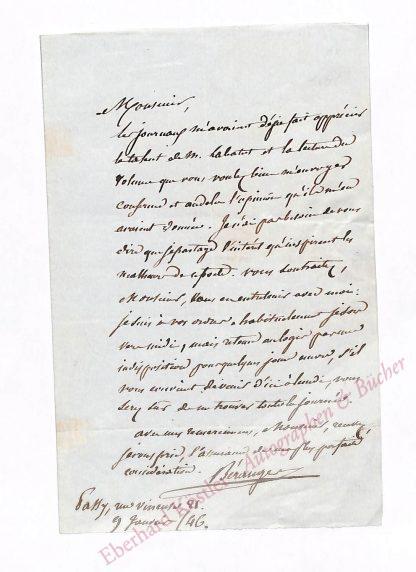 Monsieur,
les journaux m'avaient déjà fait apprécier
le talent de M. Labatut et la lecture du
volume que vous voulez bien m'envoyer
confirme et au delà l'opinion qu'ils m'en
avaient donnée. Je n'ai pas besoin de vous
dire que je partage l'intérêt qu'inspirent les
malheurs de ce poète. vous souhaitez,
Monsieur, vous en entretenir avec moi:
je suis à vos ordres. habituellement je sors
vers midi, mais retenu au logis par une
indisposition pour quelques jours encore, s'il
vous convient de venir d'ici à lundi, vous
serez sûr de me trouver toute la journée.
avec mes remerciemens, Monsieur, veuillez,
je vous prie, l'assurance de ma plus parfaite
considération. Béranger
Passy, rue Vineuse
9 Janvier /46.
Eberhard Köstler Autographen & Bücher